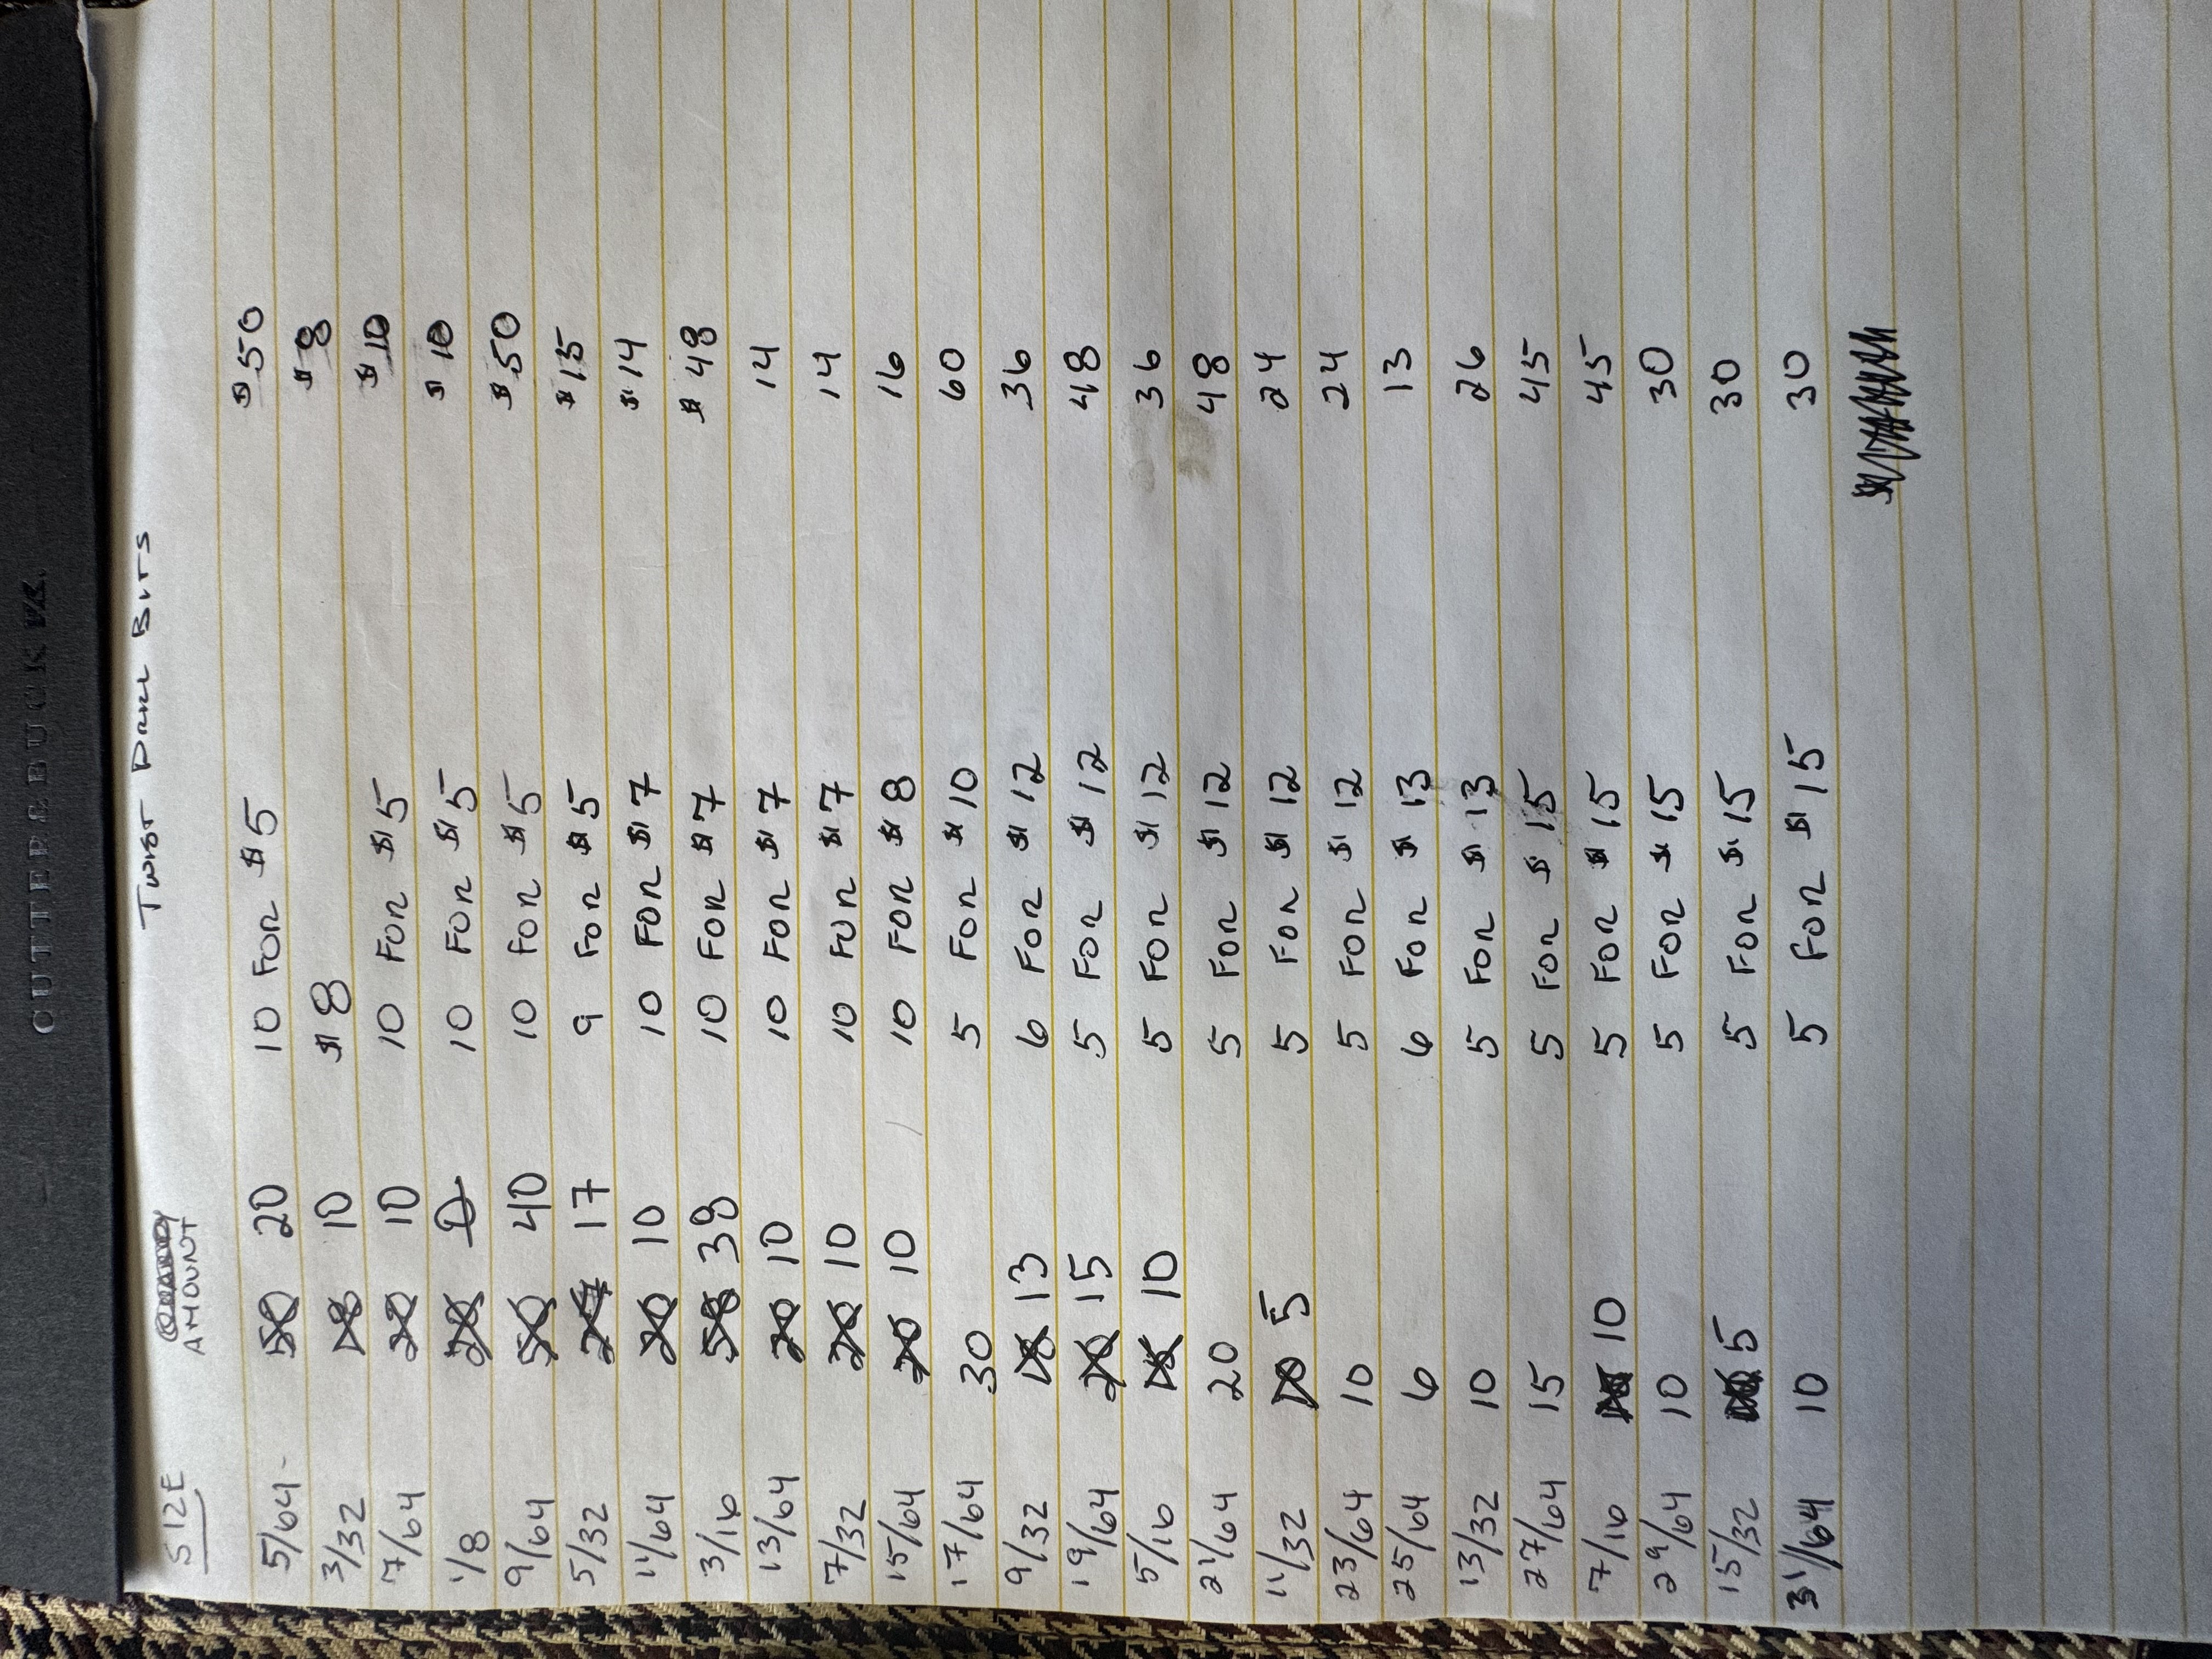 CUTTER & BUCK
Twist Drill Bits
SIZE AMOUNT
5/64 50 20 10 For $5 $50
3/32 18 10 $8 $8
7/64 20 10 10 For $5 $10
1/8 20 10 For $5 $10
9/64 50 40 10 For $5 $50
5/32 17 9 For $5 $15
11/64 20 10 10 For $7 $14
3/16 58 38 10 For $7 $48
13/64 20 10 10 For $7 14
7/32 20 10 10 For $7 14
15/64 20 10 10 For $8 16
17/64 30 5 For $10 60
9/32 18 13 6 For $12 36
19/64 20 15 5 For $12 48
5/16 15 10 5 For $12 36
21/64 20 5 For $12 48
11/32 10 5 5 For $12 24
23/64 10 5 For $12 24
25/64 6 6 For $13 13
13/32 10 5 For $13 26
27/64 15 5 For $15 45
7/16 10 5 For $15 45
29/64 10 5 For $15 30
15/32 5 5 For $15 30
31/64 10 5 For $15 30